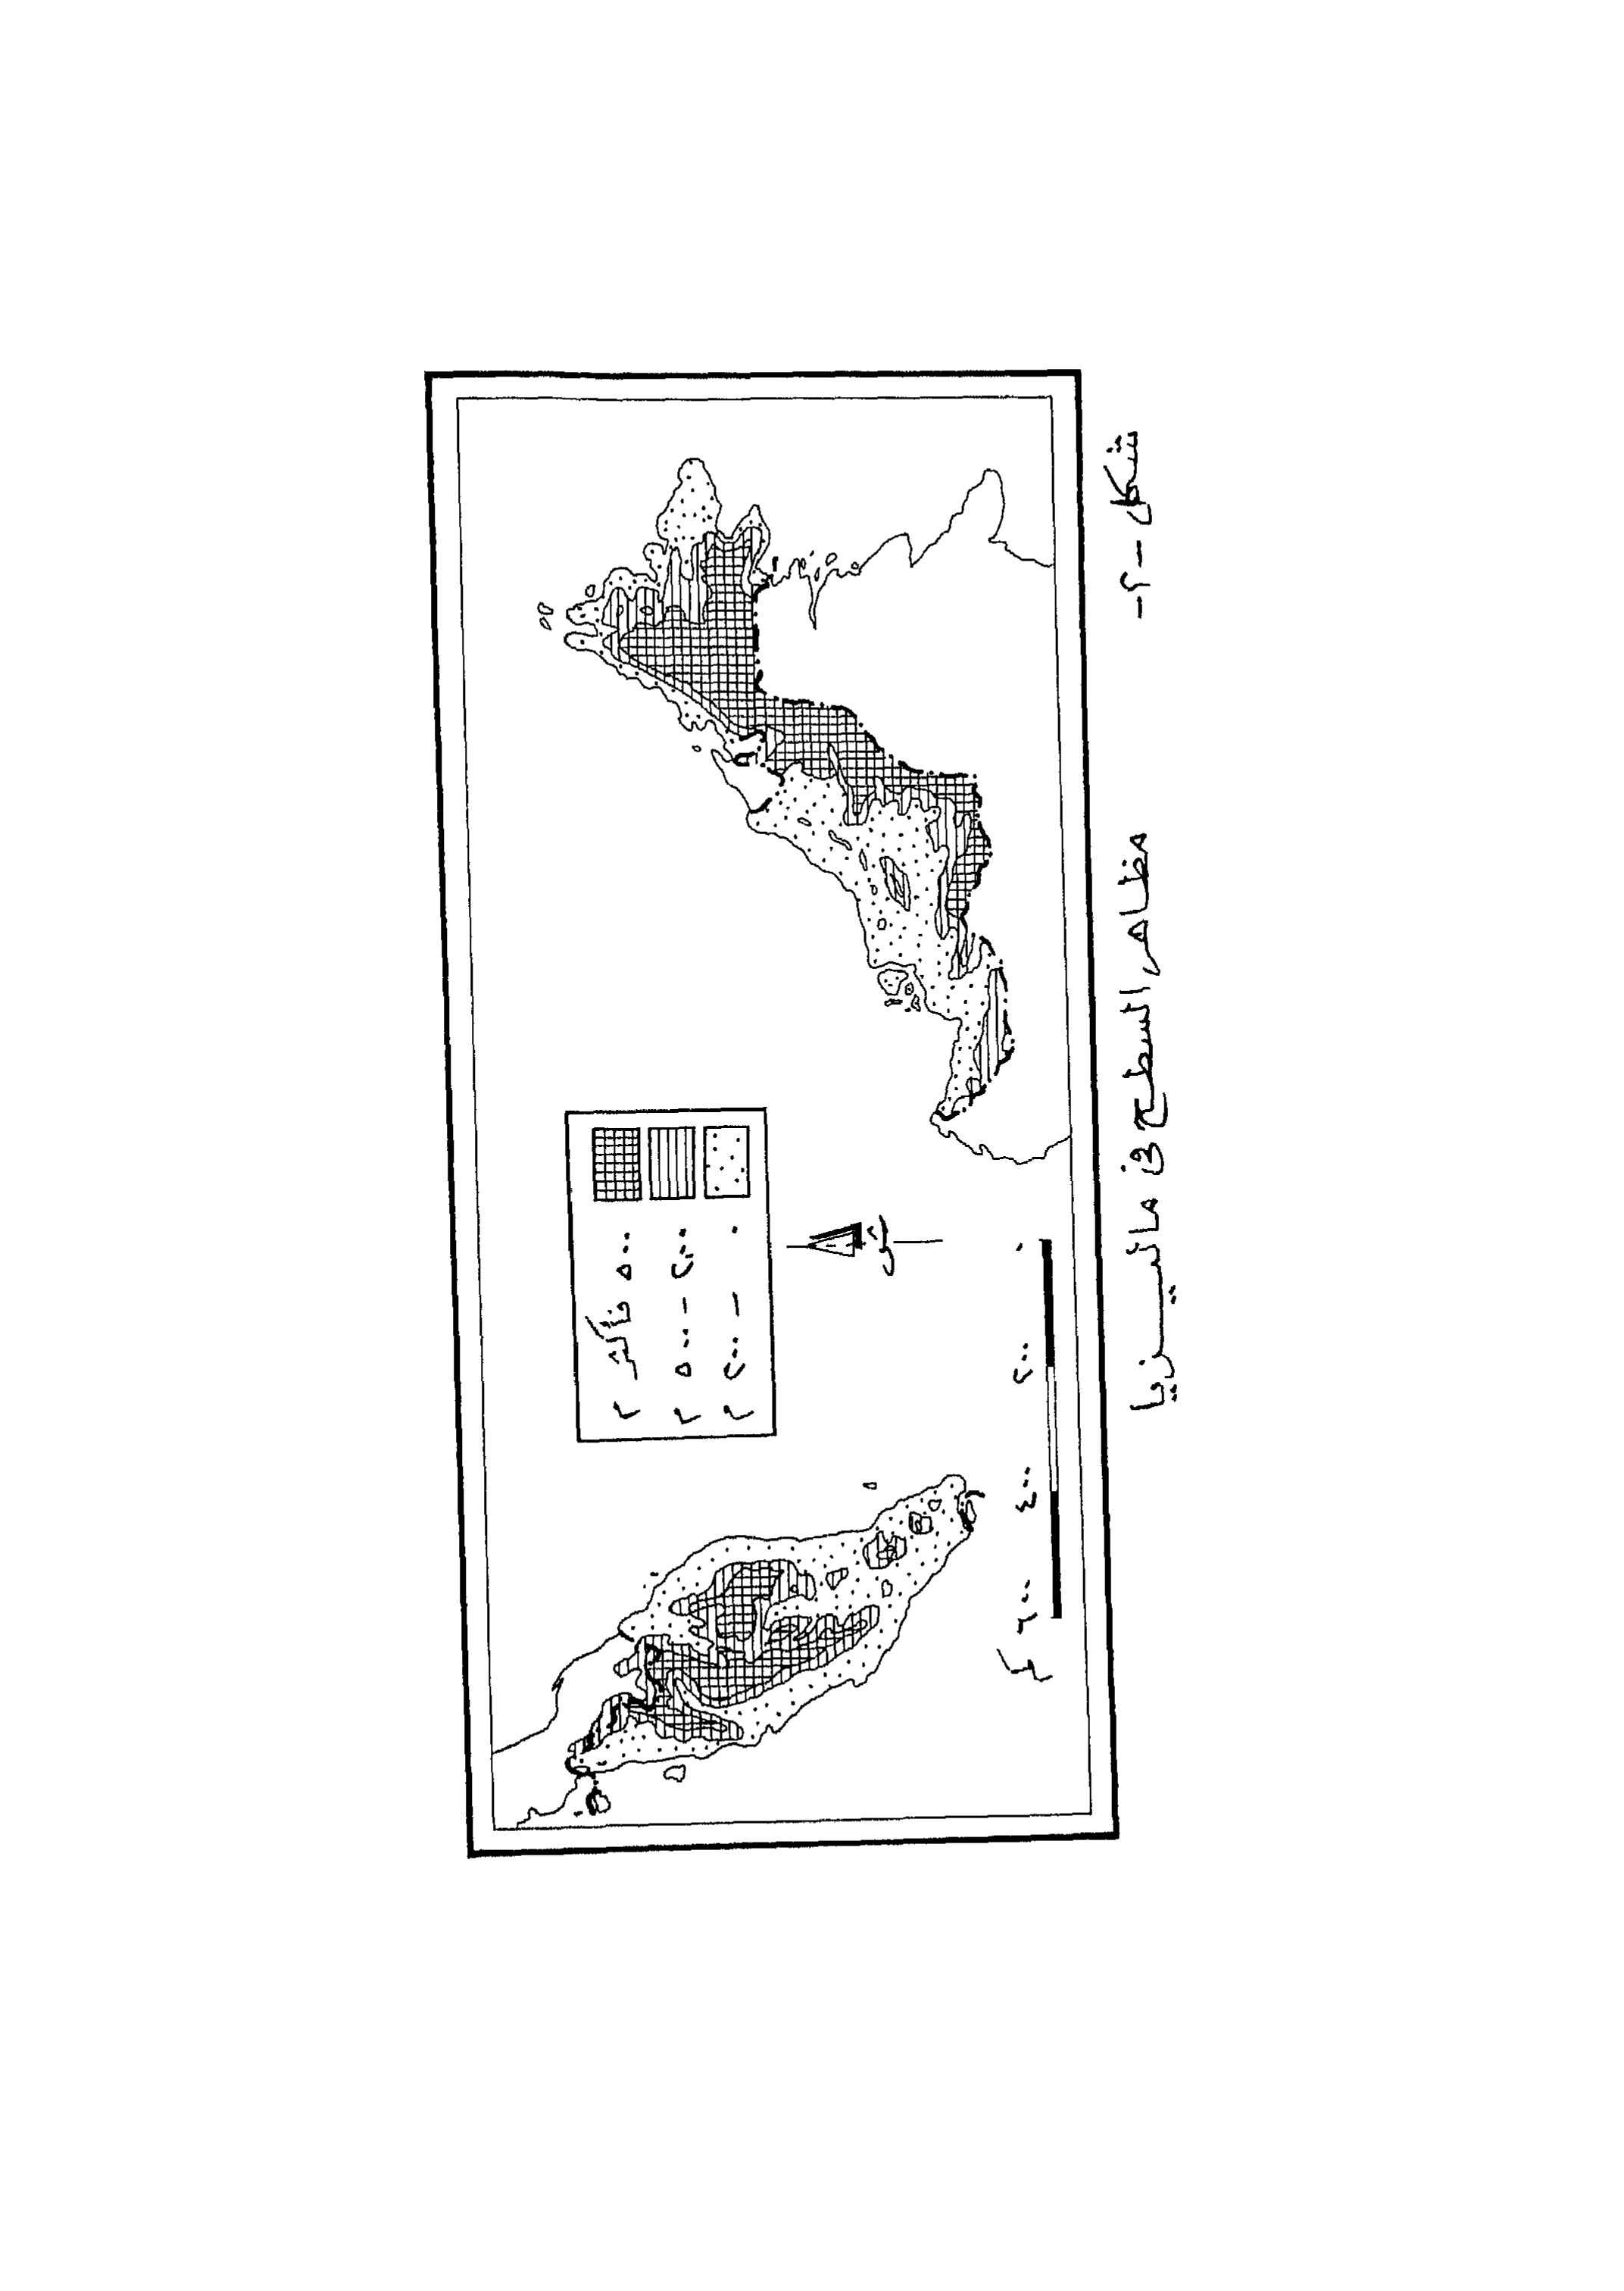 ٥٠٠ فأكثر م
٢٠٠ - ٥٠٠ م
٠ - ٢٠٠ م
ش
٠ ٢٠٠ ٤٠٠ ٦٠٠ كم
شكل -٢-
مظاهر السطح في ماليزيا